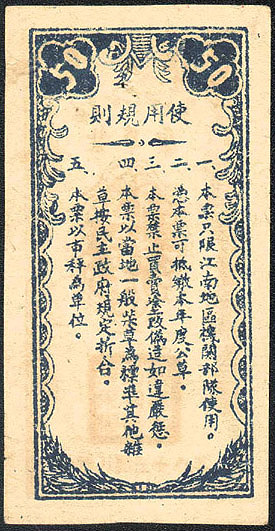 50
50
使用規則
一、本票只限江南地區機関部隊使用。
二、憑本票可抵繳本年度公草。
三、本票禁止買賣塗改偽造如違嚴懲。
四、本票以當地一般柴草為標準其他雜
草按民主政府規定折合。
五、本票以市秤為單位。